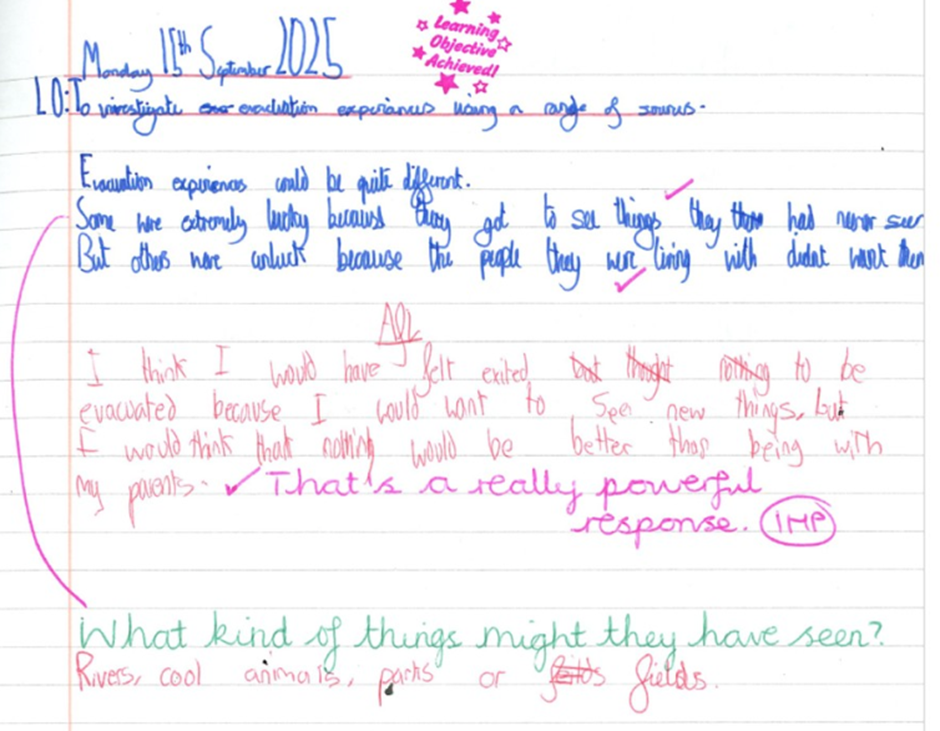 Monday 15th September 2025
Learning
Objective
Achieved!
LO: To investigate evacuation experiances using a range of sources.
Evacuation experiences could be quite different.
Some were extremely lucky because they got to see things they had never seen
But others were unluck because the people they were living with didnt want them
I think I would have felt exited but thought nothing to be
evacuated because I would want to see new things, but
I would think that nothing would be better than being with
my parents. ✓ That's a really powerful
response. IMP
What kind of things might they have seen?
Rivers, cool animals, parks or fields.